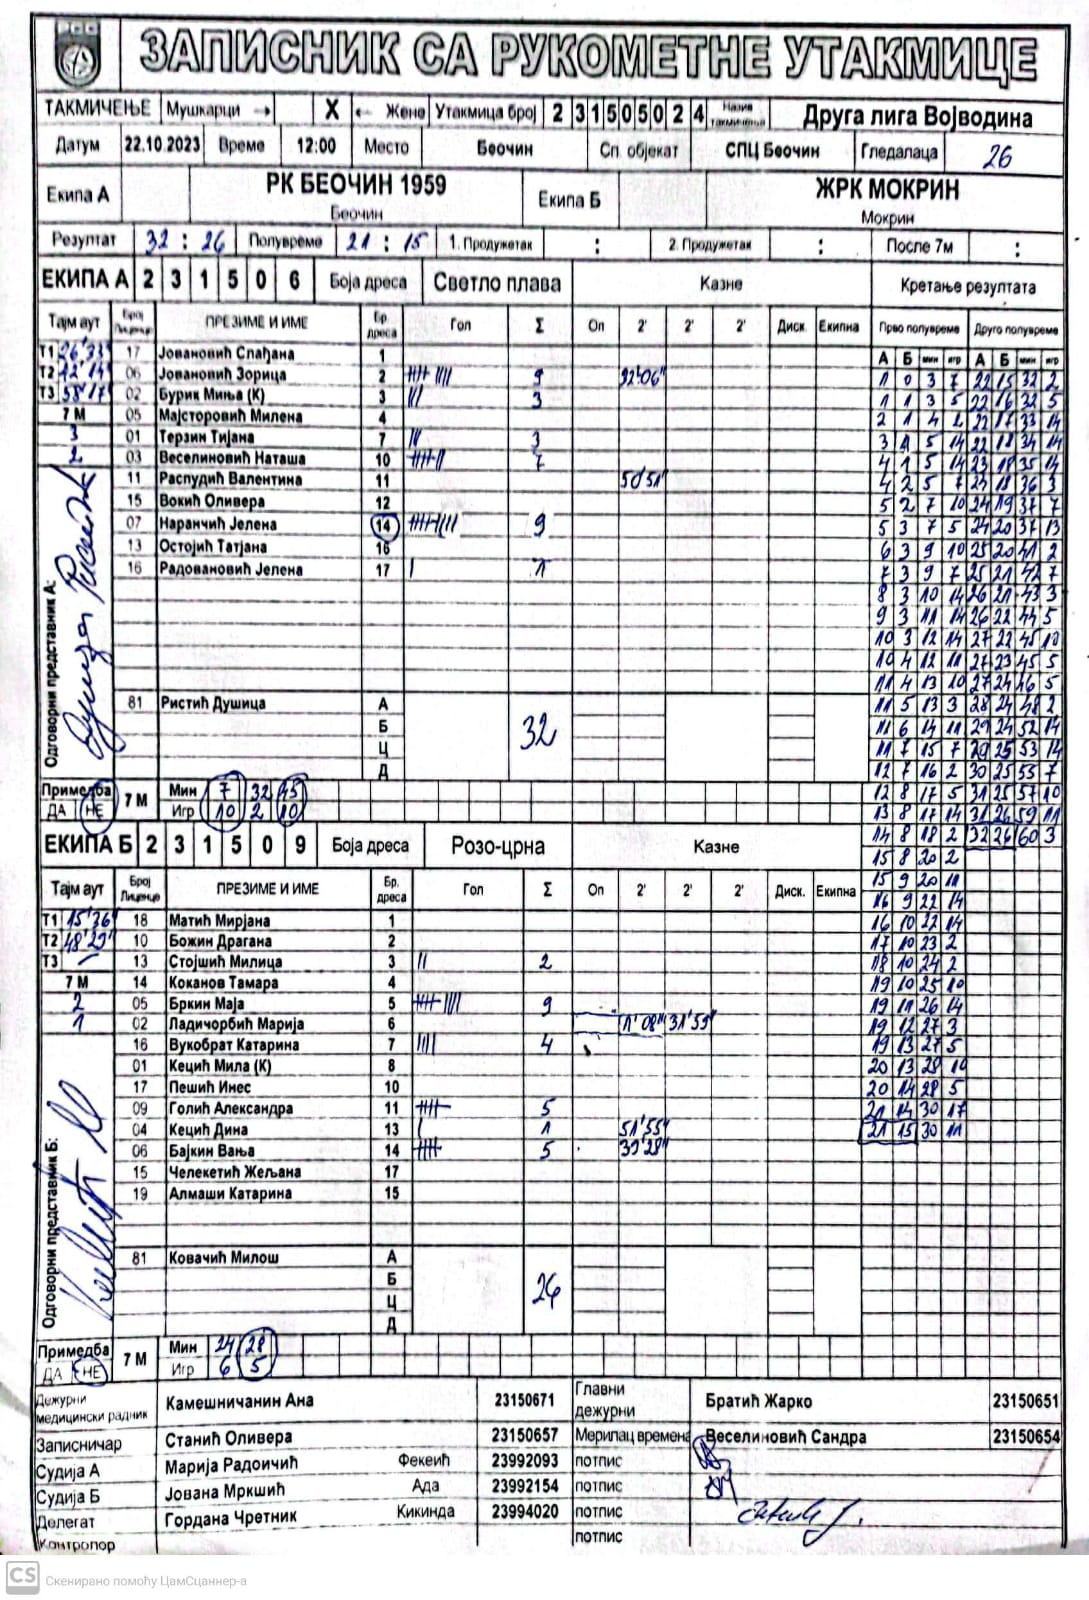 РСС
ЗАПИСНИК СА РУКОМЕТНЕ УТАКМИЦЕ
ТАКМИЧЕЊЕ Мушкарци → X ← Жене Утакмица број 2 3 1 5 0 5 0 2 4 Назив такмичења Друга лига Војводина
Датум 22.10.2023 Време 12:00 Место Беочин Сп. објекат СПЦ Беочин Гледалаца 26
Екипа А РК БЕОЧИН 1959 Екипа Б ЖРК МОКРИН
Беочин Мокрин
Резултат 32 : 26 Полувреме 21 : 15 1. Продужетак : 2. Продужетак : После 7м :
ЕКИПА А 2 3 1 5 0 6 Боја дреса Светло плава Казне Кретање резултата
Тајм аут Број Лиценце ПРЕЗИМЕ И ИМЕ Бр. дреса Гол Σ Оп 2' 2' 2' Диск. Екипна Прво полувреме Друго полувреме
А Б мин игр А Б мин игр
Т1 26'33" 17 Јовановић Слађана 1
Т2 42'14" 06 Јовановић Зорица 2 9 32'06" 1 0 3 7 22 15 32 2
Т3 58'17" 02 Бурик Миња (К) 3 3 1 1 3 5 22 16 32 5
7 М 05 Мајсторовић Милена 4 2 1 4 2 22 17 33 14
3 01 Терзин Тијана 7 3 3 1 5 14 22 18 34 14
2 03 Веселиновић Наташа 10 7 4 1 5 14 23 18 35 14
11 Распудић Валентина 11 50'51" 4 2 5 7 23 18 36 3
15 Вокић Оливера 12 5 2 7 10 24 19 37 7
07 Наранчић Јелена 14 9 5 3 7 5 24 20 37 13
13 Остојић Татјана 16 6 3 9 10 25 20 41 2
16 Радовановић Јелена 17 1 7 3 9 7 25 21 42 7
8 3 10 14 26 21 43 3
9 3 11 14 26 22 44 5
10 3 12 14 27 22 45 10
10 4 12 11 27 23 45 5
11 4 13 10 27 24 46 5
Одговорни представник А:
81 Ристић Душица А 32 11 5 13 3 28 24 48 2
Б 11 6 14 11 29 24 52 14
Ц 11 7 15 7 29 25 53 14
Д 12 7 16 2 30 25 55 7
Примедба ДА НЕ 7 М Мин 7 32 45 12 8 17 5 31 25 57 10
Игр 10 2 10 13 8 17 14 31 26 59 11
ЕКИПА Б 2 3 1 5 0 9 Боја дреса Розо-црна Казне 14 8 18 2 32 26 60 3
15 8 20 2
Тајм аут Број Лиценце ПРЕЗИМЕ И ИМЕ Бр. дреса Гол Σ Оп 2' 2' 2' Диск. Екипна 15 9 20 11
16 9 22 14
Т1 15'36" 18 Матић Мирјана 1 16 10 22 14
Т2 48'29" 10 Божин Драгана 2 17 10 23 2
Т3 13 Стојшић Милица 3 2 18 10 24 2
7 М 14 Коканов Тамара 4 19 10 25 10
2 05 Бркин Маја 5 9 19 11 26 14
1 02 Ладичорбић Марија 6 11'08" 31'59" 19 12 27 3
16 Вукобрат Катарина 7 4 19 13 27 5
01 Кецић Мила (К) 8 20 13 28
17 Пешић Инес 10 20 14 28 5
09 Голић Александра 11 5 21 14 30 17
04 Кецић Дина 13 1 51'55" 21 15 30 11
06 Бајкин Вања 14 5 39'28"
15 Челекетић Жељана 17
19 Алмаши Катарина 15
Одговорни представник Б:
81 Ковачић Милош А 26
Б
Ц
Д
Примедба ДА НЕ 7 М Мин 24 28
Игр 6 5
Дежурни медицински радник Камешничанин Ана 23150671 Главни дежурни Братић Жарко 23150651
Записничар Станић Оливера 23150657 Мерилац времена Веселиновић Сандра 23150654
Судија А Марија Радоичић Фекеић 23992093 потпис
Судија Б Јована Мркшић Ада 23992154 потпис
Делегат Гордана Чретник Кикинда 23994020 потпис
Контролор потпис
CS Скенирано помоћу ЦамСцаннер-а